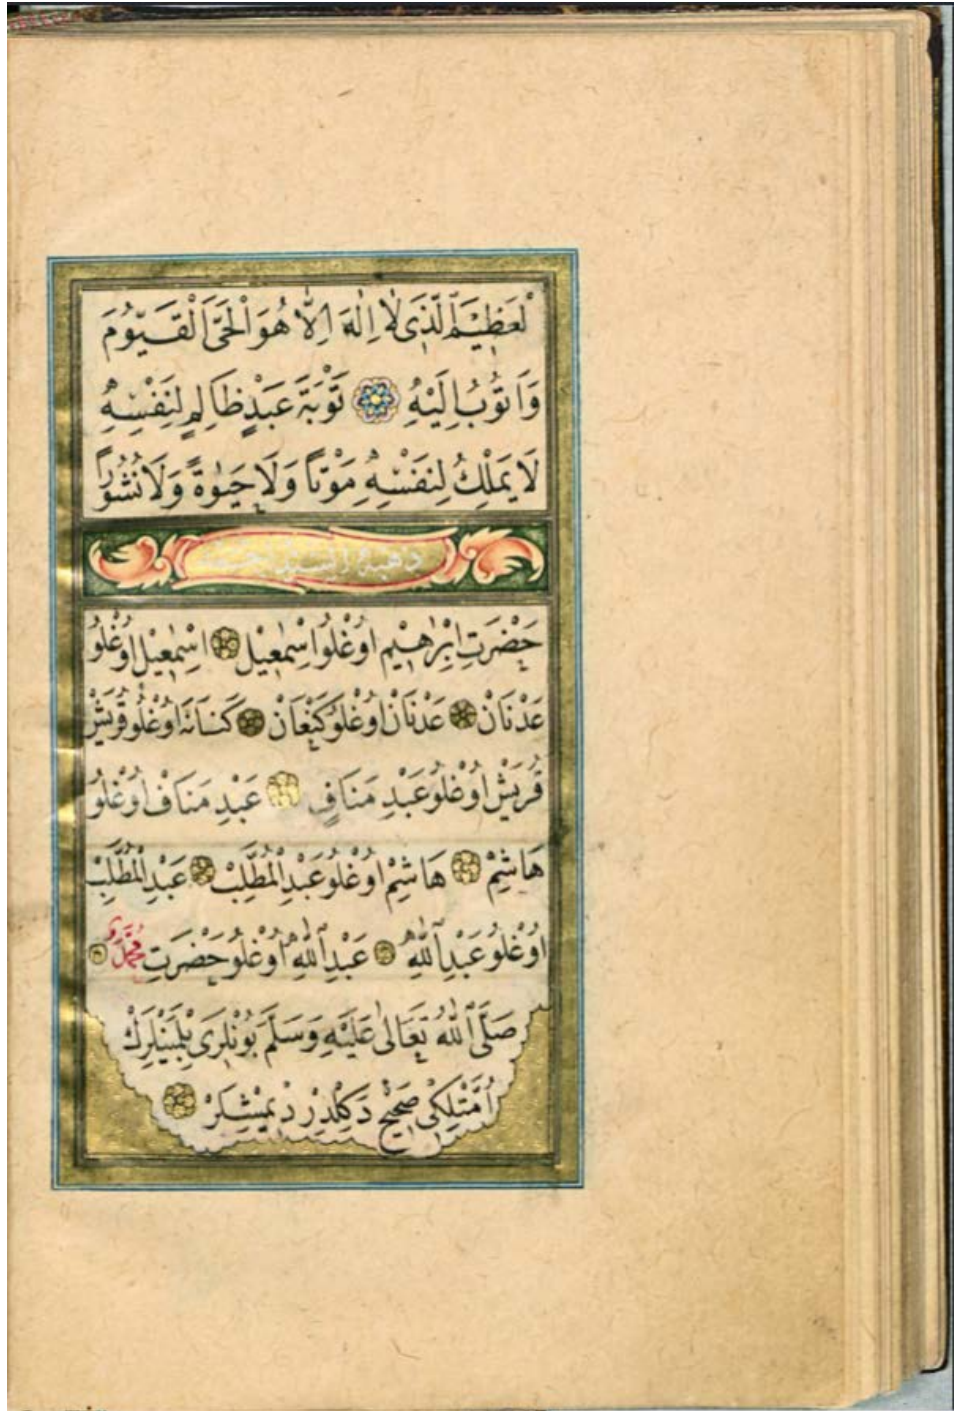 لْعَظِيْمَ اَلَّذِى لَا اِلٰهَ اِلَّا هُوَ الْحَىَّ الْقَيُّومَ
وَاَتُوبُ اِلَيْهِ تَوْبَةَ عَبْدٍ ظَالِمٍ لِنَفْسِهِ
لَا يَمْلِكُ لِنَفْسِهِ مَوْتًا وَلَا حَيٰوةً وَلَا نُشُورًا
حَضْرَتِ اِبْرٰهِيْم اوُغْلُو اِسْمٰعِيْلْ اِسْمٰعِيْل اوُغْلُو
عَدْنَانْ عَدْنَانْ اوُغْلُو كَنْعَانْ كَنَانَه اوُغْلُو قُرَيْشْ
قُرَيْشْ اوُغْلُو عَبْدِ مَنَافٍ عَبْدِ مَنَافْ اوُغْلُو
هَاشِمْ هَاشِمْ اوُغْلُو عَبْدِ الْمُطَّلِبْ عَبْدِ الْمُطَّلِبْ
اوُغْلُو عَبْدِ اللّٰهْ عَبْدِ اللّٰهْ اوُغْلُو حَضْرَتِ مُحَمَّدْ
صَلَّى اللّٰهُ تَعَالٰى عَلَيْهِ وَسَلَّمَ بُونْلَرِى بِلْمَيَنْلَرِكْ
اُمَّتْلِكِى صَحِيْح دَكِلْدِرْ دِيْمِشْلَرْ